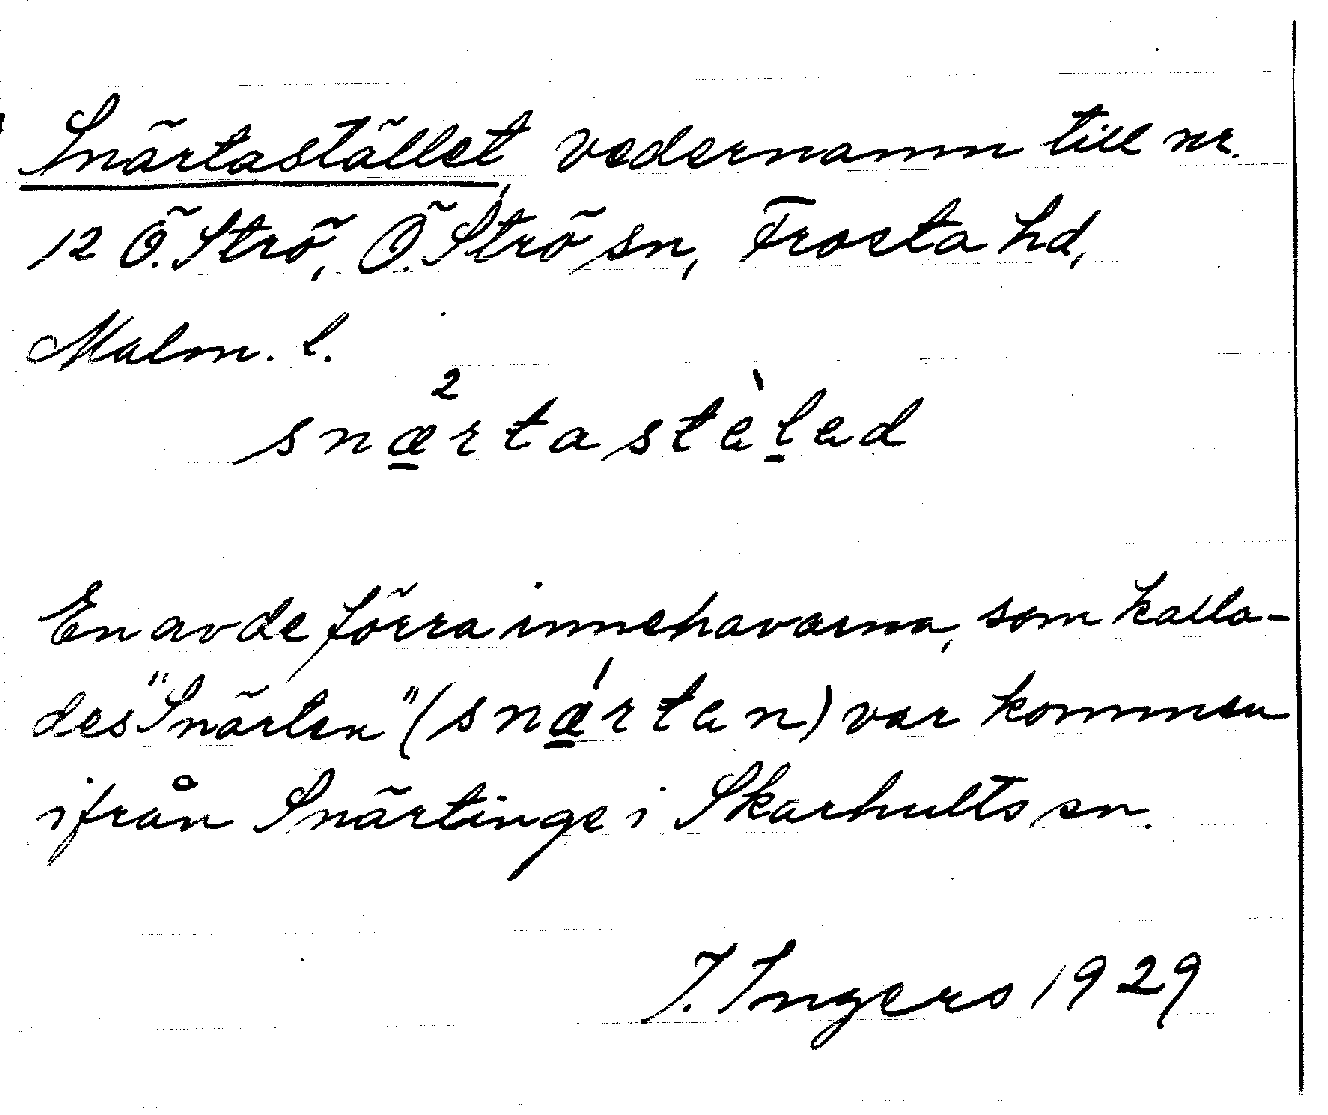 Snärtastället, vedernamn till nr.
12 Ö. Strö, Ö. Strö sn, Frosta hd,
Malm. l.
snæ²rtastèled
En av de förra innehavarna, som kalla-
des "Snärten" (snǽrtan) var kommen
ifrån Snärtinge i Skarhults sn.
I. Ingers 1929